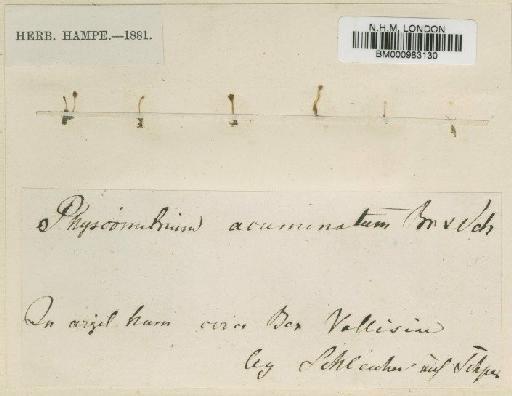 HERB. HAMPE.—1881.
N.H.M. LONDON
BM000983130
Physcomitrium acuminatum Br & Sch
In argil hum circa Bex Vallisiae
leg Schleicher